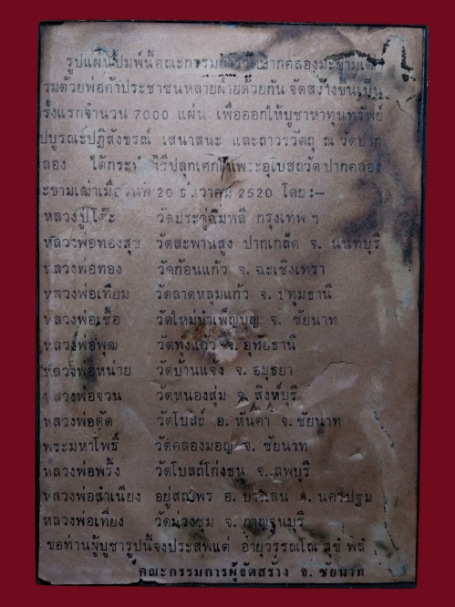 รูปแผ่นปั๊มพ์นี้คณะกรรมการวัดปากคลองมะขามเฒ่า
ร่วมด้วยพ่อค้าประชาชนหลายฝ่ายด้วยกัน จัดสร้างขึ้นเป็น
ครั้งแรกจำนวน 7000 แผ่น เพื่อออกให้บูชาหาทุนทรัพย์
ไปบูรณะปฏิสังขรณ์ เสนาสนะ และถาวรวัตถุ ณ วัดปาก
คลอง ได้กระทำพิธีปลุกเศกในพระอุโบสถวัดปากคลอง
มะขามเฒ่าเมื่อวันที่ 20 ธันวาคม 2520 โดย :—
หลวงปู่โต๊ะ วัดประดู่ฉิมพลี กรุงเทพ ฯ
หลวงพ่อทองสุข วัดสะพานสูง ปากเกล็ด จ. นนทบุรี
หลวงพ่อทอง วัดก้อนแก้ว จ. ฉะเชิงเทรา
หลวงพ่อเทียม วัดลาดหลุมแก้ว จ. ปทุมธานี
หลวงพ่อเชื้อ วัดใหม่บำเพ็ญบุญ จ. ชัยนาท
หลวงพ่อพุฒ วัดทุ่งแก้ว จ. อุทัยธานี
หลวงพ่อหน่าย วัดบ้านแจ้ง จ. อยุธยา
หลวงพ่อจวน วัดหนองสุ่ม จ. สิงห์บุรี
หลวงพ่อดัด วัดโบสถ์ อ. หันคา จ. ชัยนาท
พระมหาโพธิ์ วัดคลองมอญ จ. ชัยนาท
หลวงพ่อพริ้ง วัดโบสถ์โก่งธนู จ. ลพบุรี
หลวงพ่อสำเนียง อยู่สถาพร อ. บางเลน จ. นครปฐม
หลวงพ่อเที่ยง วัดม่วงชุม จ. กาญจนบุรี
ขอท่านผู้บูชารูปนี้จงประสพแต่ อายุวรรณโณ สุขํ พลํ
คณะกรรมการผู้จัดสร้าง จ. ชัยนาท